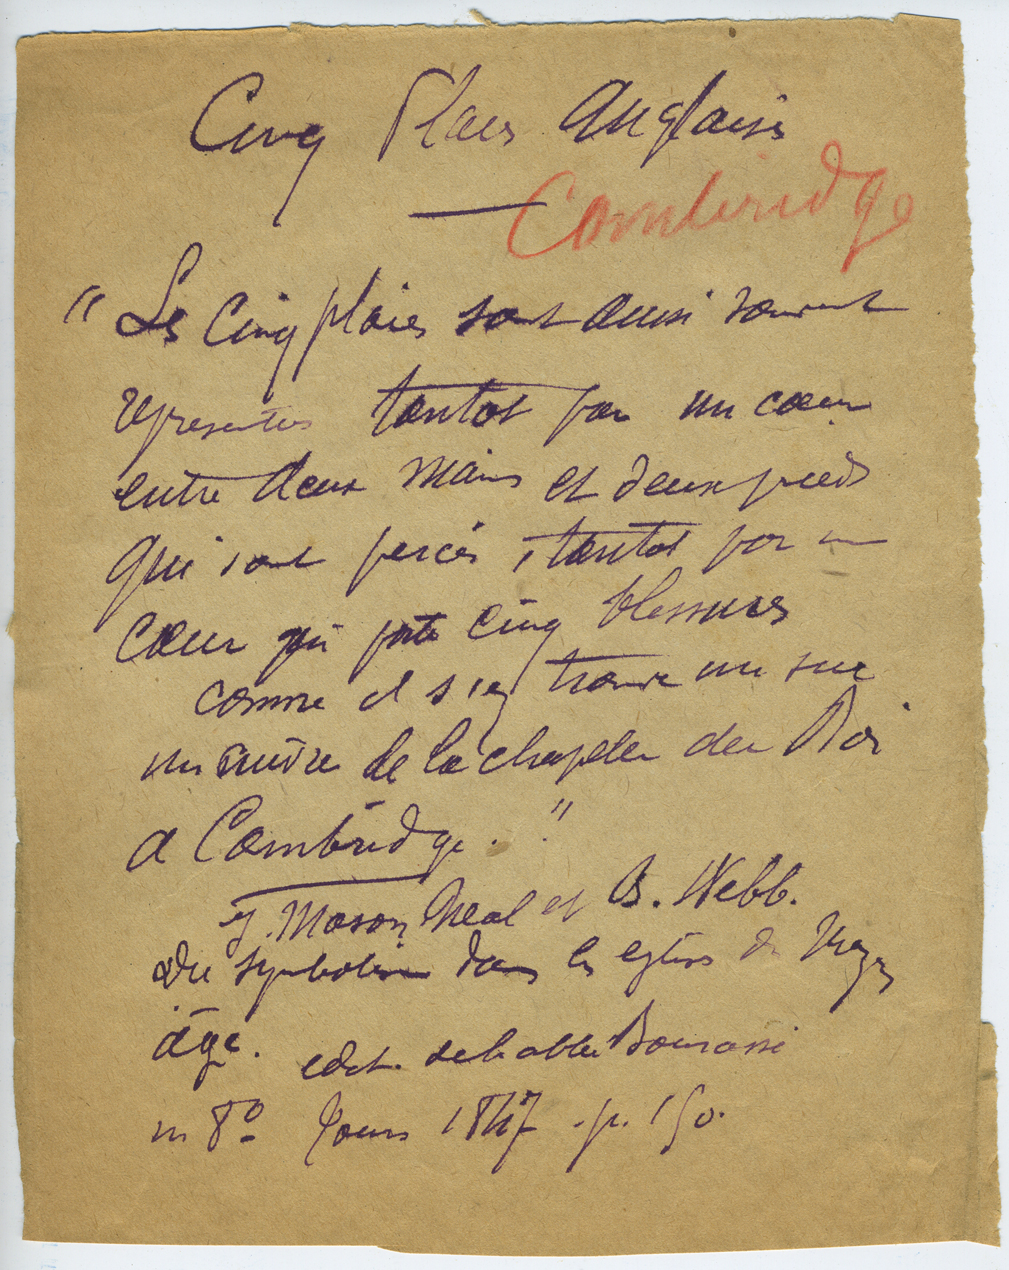 Cinq Plaies Anglaises
Cambridge
"Les Cinq plaies sont aussi souvent
representés tantot par un cœur
entre deux mains et deux pieds
qui sont percés, tantot par un
cœur qui porte cinq blessures
comme il s'en trouve un sur
un cuivre de la chapelle du Roi
a Cambridge."
J. Mason Neal et B. Webb.
Du Symbolisme dans les eglises du Moyen
âge. edit. de l'abbé Bourassé
in 8º Tours 1847. p. 150.